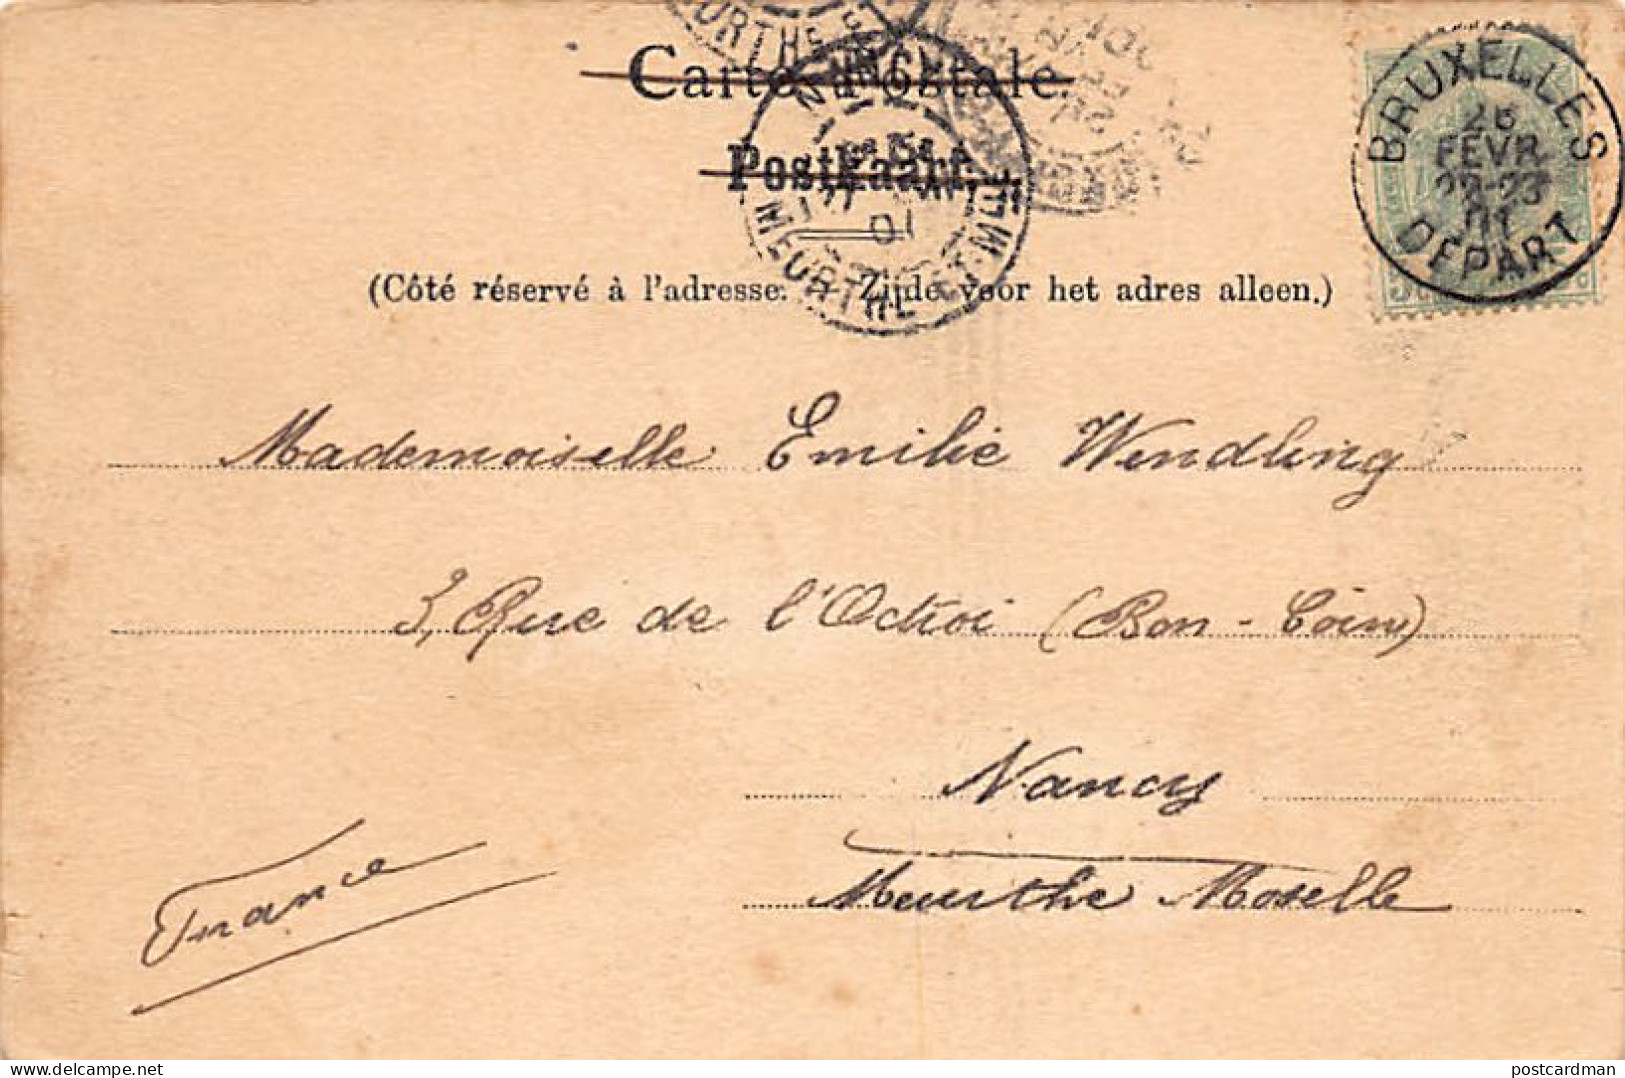 Carte Postale.
Postkaart.
NANCY
MEURTHE ET M
01
BRUXELLES
26
FEVR.
22-23
01
DEPART
(Côté réservé à l'adresse. Zijde voor het adres alleen.)
Mademoiselle Emilie Wendling
3, Rue de l'Octroi (Bon-Coin)
Nancy
Meurthe Moselle
France
delcampe.net
postcardman